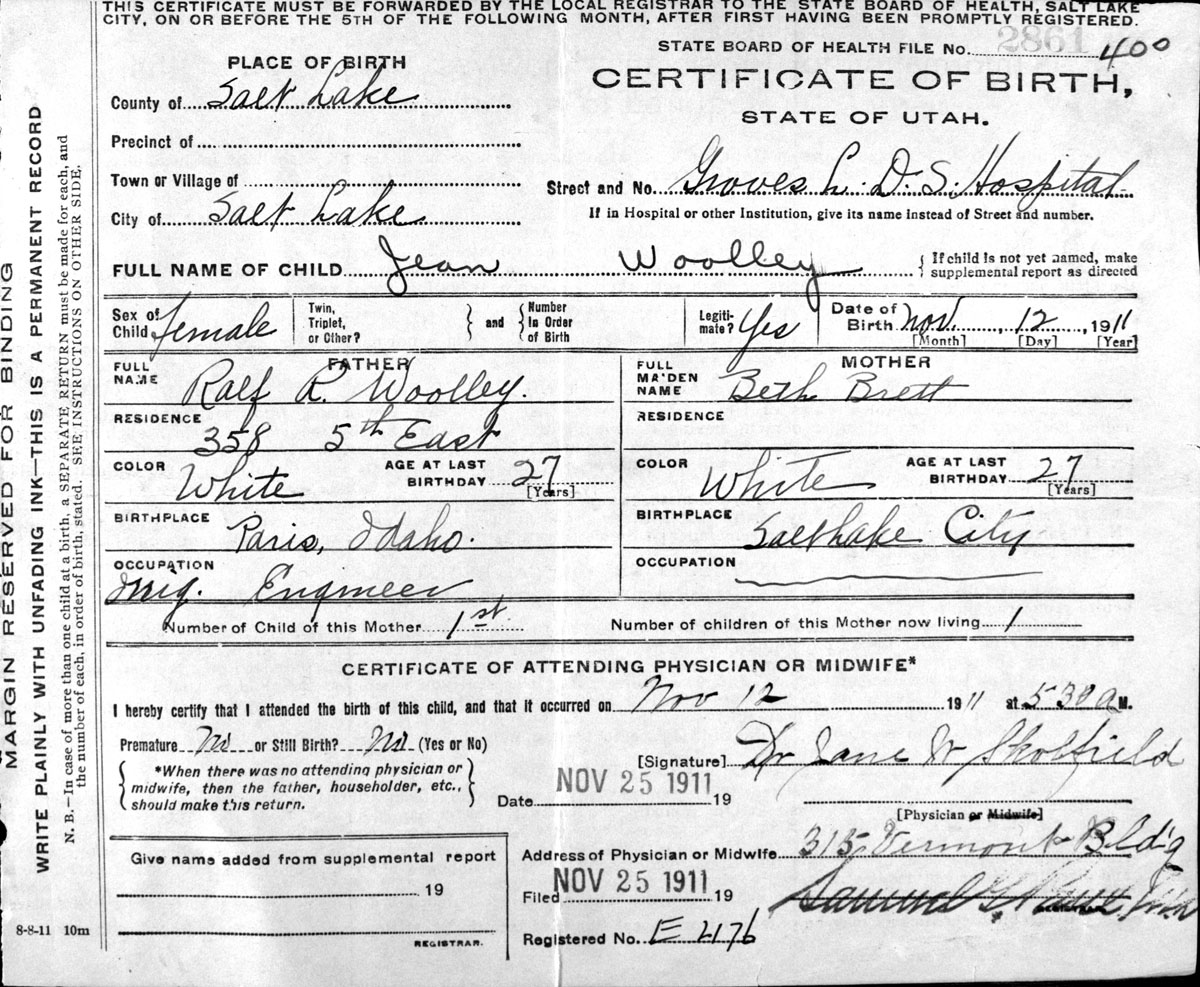 THIS CERTIFICATE MUST BE FORWARDED BY THE LOCAL REGISTRAR TO THE STATE BOARD OF HEALTH, SALT LAKE
CITY, ON OR BEFORE THE 5TH OF THE FOLLOWING MONTH, AFTER FIRST HAVING BEEN PROMPTLY REGISTERED.
MARGIN RESERVED FOR BINDING
WRITE PLAINLY WITH UNFADING INK—THIS IS A PERMANENT RECORD
N. B.—In case of more than one child at a birth, a SEPARATE RETURN must be made for each, and
the number of each, in order of birth, stated. SEE INSTRUCTIONS ON OTHER SIDE.
8-8-11 10m
STATE BOARD OF HEALTH FILE No. 2861 400
PLACE OF BIRTH
CERTIFICATE OF BIRTH,
STATE OF UTAH.
County of Salt Lake
Precinct of
Town or Village of
Street and No. Groves L. D. S. Hospital
City of Salt Lake
If in Hospital or other Institution, give its name instead of Street and number.
FULL NAME OF CHILD Jean Woolley
{ If child is not yet named, make
supplemental report as directed
Sex of
Child. female
Twin,
Triplet,
or Other?
} and {
Number
in Order
of Birth
Legiti-
mate? Yes
Date of
Birth Nov , 12 , 1911
[Month] [Day] [Year]
FATHER
FULL
NAME Ralf R. Woolley.
MOTHER
FULL
MAIDEN
NAME Beth Brett
RESIDENCE
358 5th East
RESIDENCE
COLOR White
AGE AT LAST
BIRTHDAY 27
[Years]
COLOR White
AGE AT LAST
BIRTHDAY 27
[Years]
BIRTHPLACE Paris, Idaho.
BIRTHPLACE Salt Lake City
OCCUPATION
Engineer
OCCUPATION
Number of Child of this Mother 1st.
Number of children of this Mother now living 1
CERTIFICATE OF ATTENDING PHYSICIAN OR MIDWIFE*
I hereby certify that I attended the birth of this child, and that it occurred on Nov 12 1911 at 5 30 a M.
Premature No or Still Birth? No (Yes or No)
{ *When there was no attending physician or
midwife, then the father, householder, etc.,
should make this return. }
[Signature] Dr Jane W Skolfield
Date NOV 25 1911 19
[Physician or Midwife]
Address of Physician or Midwife 315 Vermont Bldg
Filed NOV 25 1911 19
Samuel G
Registered No. E 2176
Give name added from supplemental report
19
REGISTRAR.